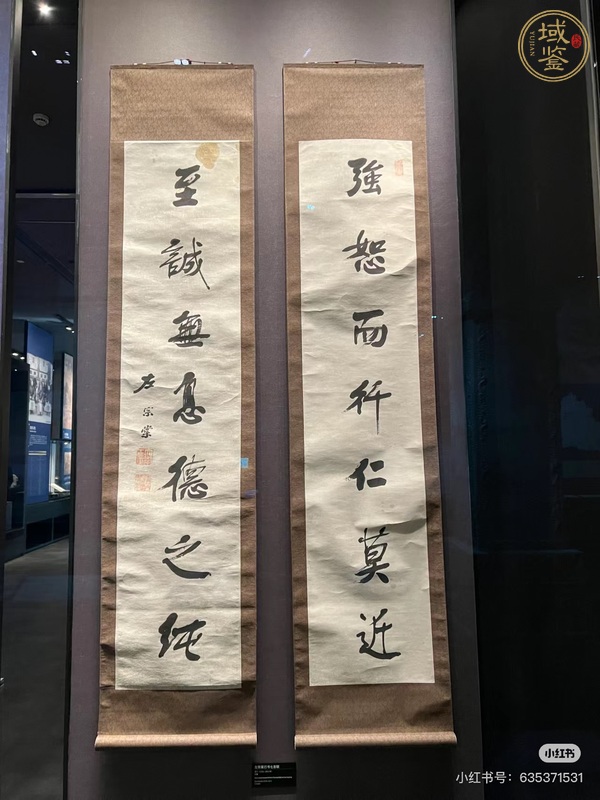 強恕而行仁莫近
至誠無息德之純
左宗棠
域鑒
YUJIAN
小红书
小红书号：635371531